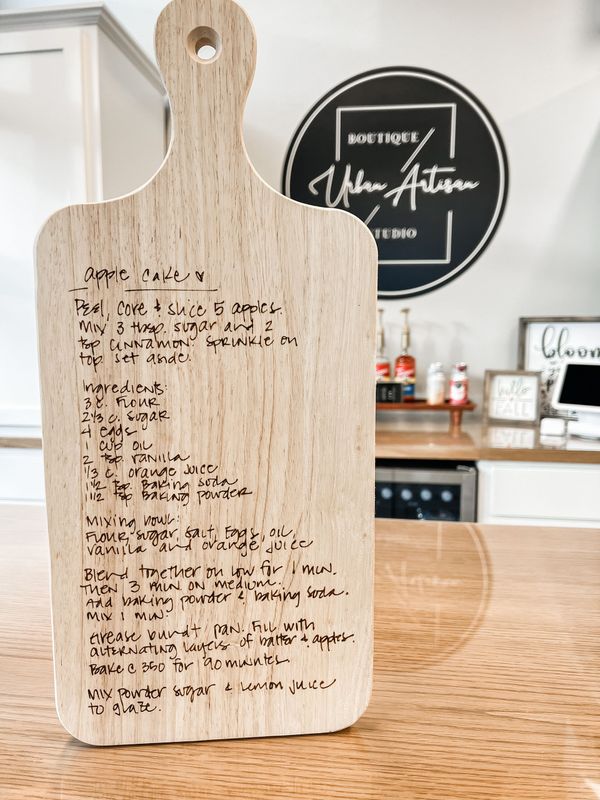 BOUTIQUE
Urban Artisan
STUDIO
bloom
hello
FALL
apple cake
Peel, core & slice 5 apples.
Mix 3 tbsp. sugar and 2
tsp cinnamon sprinkle on
top. set aside.
Ingredients:
3 c. Flour
2 1/3 c. sugar
4 eggs
1 cup oil
2 tsp. vanilla
1/3 c. orange juice
1 1/2 tsp. Baking soda
1 1/2 tsp Baking powder
Mixing bowl:
Flour, sugar, salt, Eggs, oil,
vanilla and orange juice
Blend together on low for 1 min.
Then 3 min on medium.
Add baking powder & baking soda.
Mix 1 min.
Grease bundt pan. Fill with
alternating layers of batter & apples.
Bake @ 350 for 90 minutes.
Mix powder sugar & lemon juice
to glaze.